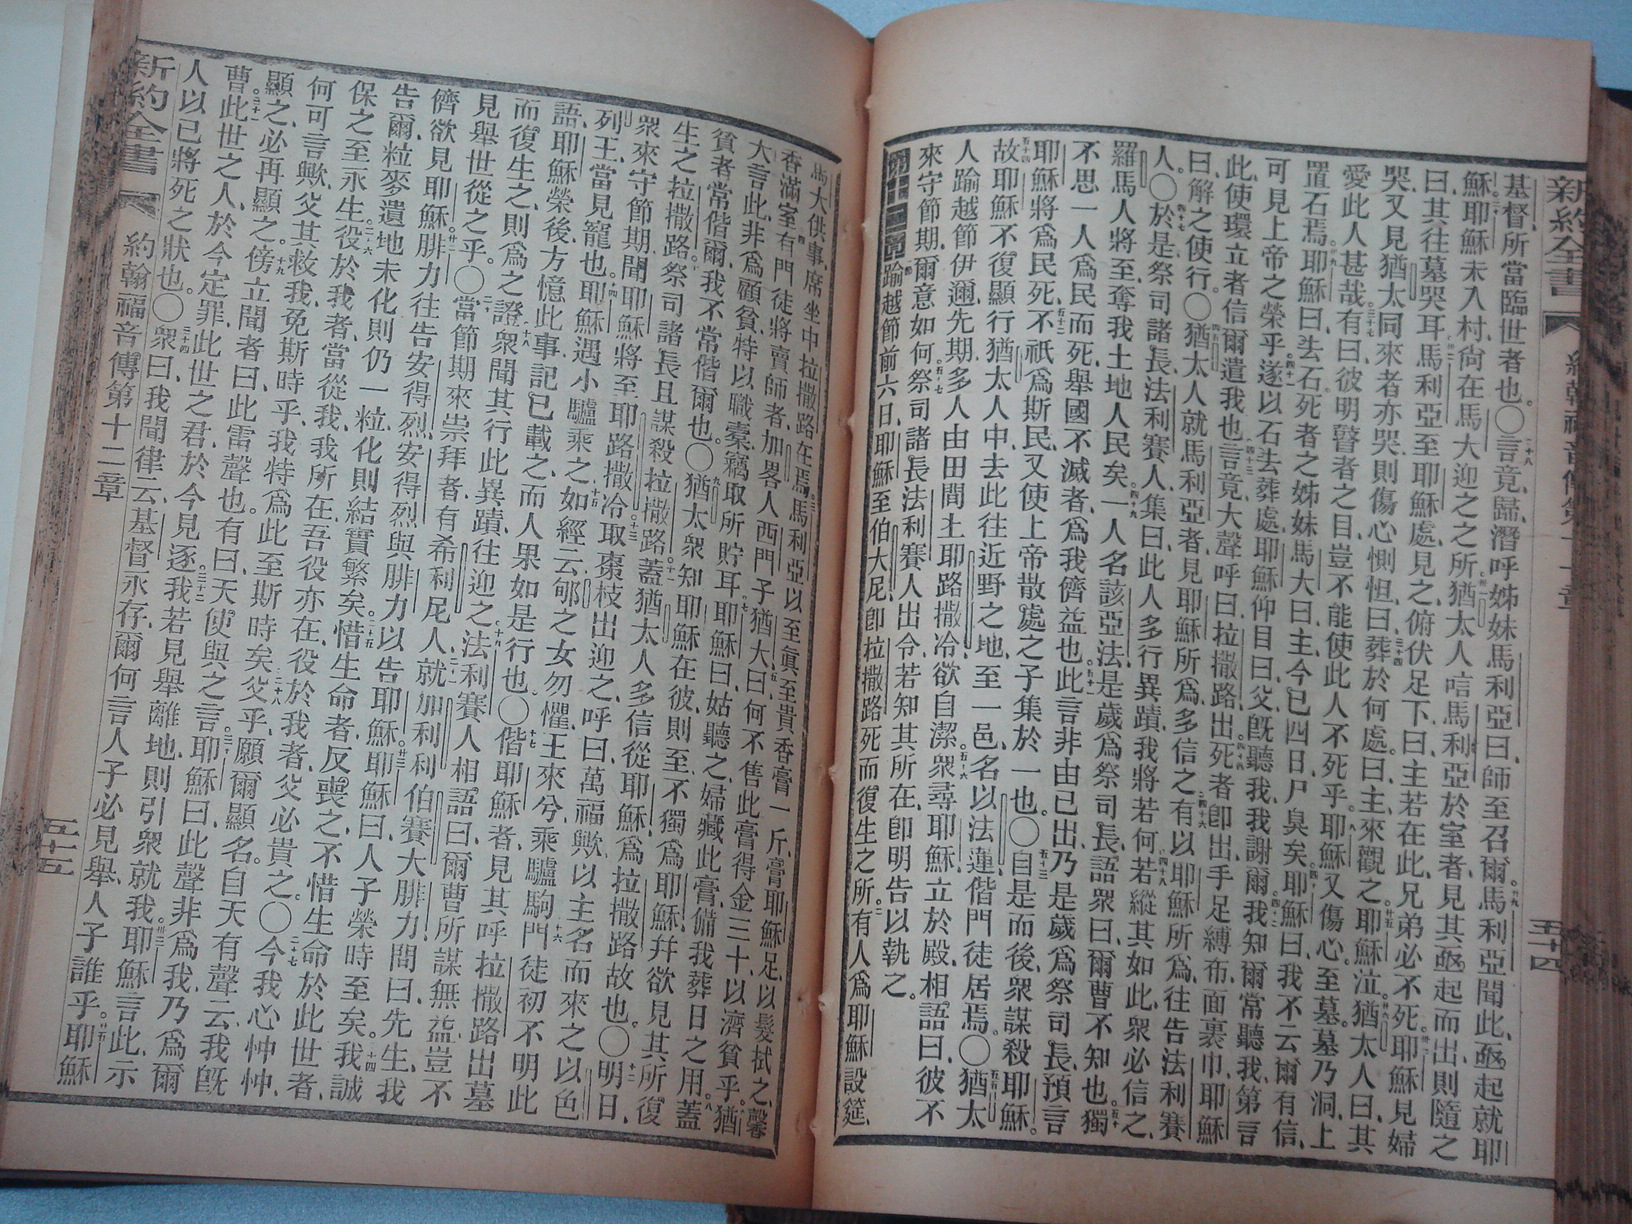 新約全書 約翰福音傳第十一章 五十四
基督所當臨世者也○言竟歸潛呼姊妹馬利亞曰師至召爾馬利亞聞此亟起就耶
穌耶穌未入村尙在馬大迎之之所猶太人唁馬利亞於室者見其亟起而出則隨之
曰其往墓哭耳馬利亞至耶穌處見之俯伏足下曰主若在此兄弟必不死耶穌見婦
哭又見猶太同來者亦哭則傷心惻怛曰葬於何處曰主來觀之耶穌泣猶太人曰其
愛此人甚哉有曰彼明瞽者之目豈不能使此人不死乎耶穌又傷心至墓墓乃洞上
置石焉耶穌曰去石死者之姊妹馬大曰主今已四日尸臭矣耶穌曰我不云爾有信
可見上帝之榮乎遂以石去葬處耶穌仰目曰父旣聽我我謝爾我知爾常聽我第言
此使環立者信爾遣我也言竟大聲呼曰拉撒路出死者卽出手足縛布面裹巾耶穌
曰解之使行○猶太人就馬利亞者見耶穌所爲多信之有以耶穌所爲往告法利賽
人○於是祭司諸長法利賽人集曰此人多行異蹟我將若何若縱其如此衆必信之
羅馬人將至奪我土地人民矣一人名該亞法是歲爲祭司長語衆曰爾曹不知也獨
不思一人爲民而死舉國不滅者爲我儕益也此言非由已出乃是歲爲祭司長預言
耶穌將爲民死不祇爲斯民又使上帝散處之子集於一也○自是而後衆謀殺耶穌
故耶穌不復顯行猶太人中去此往近野之地至一邑名以法蓮偕門徒居焉○猶太
人踰越節伊邇先期多人由田間上耶路撒冷欲自潔衆尋耶穌立於殿相語曰彼不
來守節期爾意如何祭司諸長法利賽人出令若知其所在卽明告以執之
第十二章踰越節前六日耶穌至伯大尼卽拉撒路死而復生之所有人爲耶穌設筵
馬大供事席坐中拉撒路在焉馬利亞以至眞至貴香膏一斤膏耶穌足以髮拭之馨
香滿室有門徒將賣師者加畧人西門子猶大曰何不售此膏得金三十以濟貧乎猶
大言此非爲顧貧特以職橐竊取所貯耳耶穌曰姑聽之婦藏此膏備我葬日之用蓋
貧者常偕爾我不常偕爾也○猶太衆知耶穌在彼則至不獨爲耶穌幷欲見其所復
生之拉撒路祭司諸長且謀殺拉撒路蓋猶太人多信從耶穌爲拉撒路故也○明日
衆來守節期聞耶穌將至耶路撒冷取棗枝出迎之呼曰萬福歟以主名而來之以色
列王當見寵也耶穌遇小驢乘之如經云郇之女勿懼王來兮乘驢駒門徒初不明此
語耶穌榮後方憶此事記已載之而人果如是行也○偕耶穌者見其呼拉撒路出墓
而復生之則爲之證衆聞其行此異蹟往迎之法利賽人相語曰爾曹所謀無益豈不
見舉世從之乎○當節期來崇拜者有希利尼人就加利利伯賽大腓力問曰先生我
儕欲見耶穌腓力往告安得烈安得烈與腓力以告耶穌耶穌曰人子榮時至矣我誠
告爾粒麥遺地未化則仍一粒化則結實繁矣惜生命者反喪之不惜生命於此世者
保之至永生役於我者當從我我所在吾役亦在役於我者父必貴之○今我心忡忡
何可言歟父其救我免斯時乎我特爲此至斯時矣父乎願爾顯名自天有聲云我旣
顯之必再顯之傍立聞者曰此雷聲也有曰天使與之言耶穌曰此聲非爲我乃爲爾
曹此世之人於今定罪此世之君於今見逐我若見舉離地則引衆就我耶穌言此示
人以已將死之狀也○衆曰我聞律云基督永存爾何言人子必見舉人子誰乎耶穌
新約全書 約翰福音傳第十二章 五十五